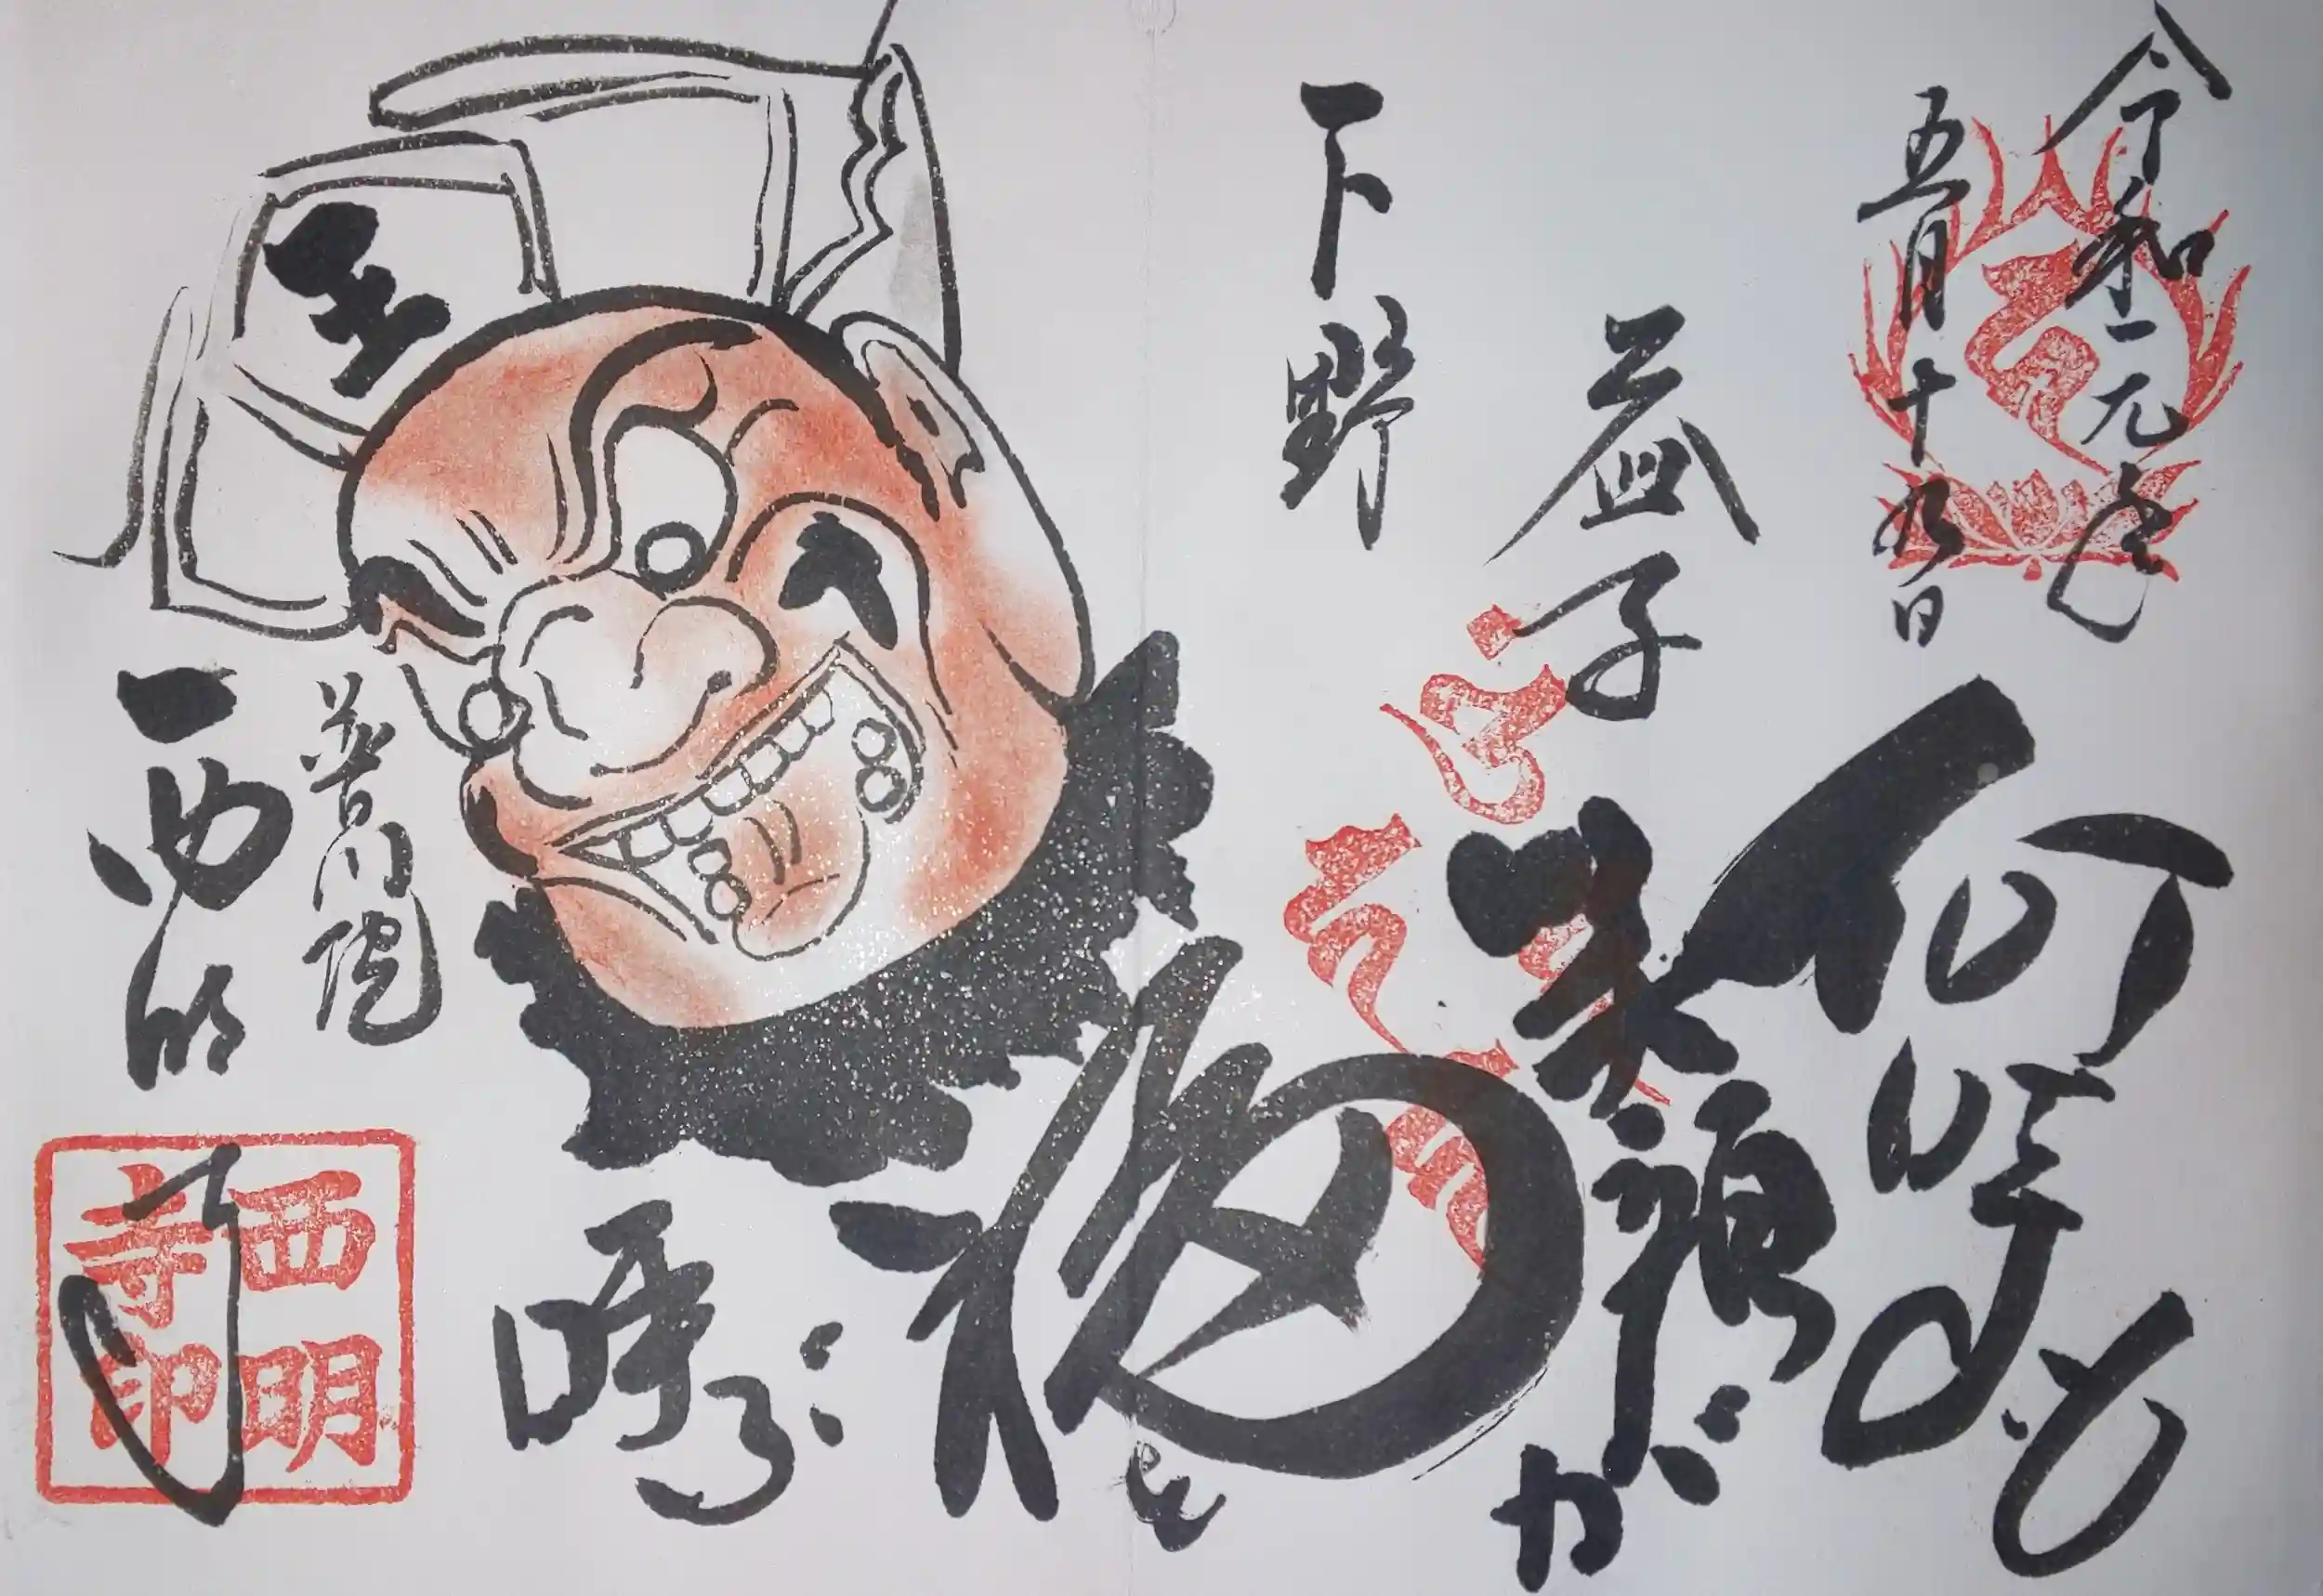 令和元年
五月十九日
下野
益子
何時も
笑顔が
福を
呼ぶ
王
普門院
西明寺
西明
寺印